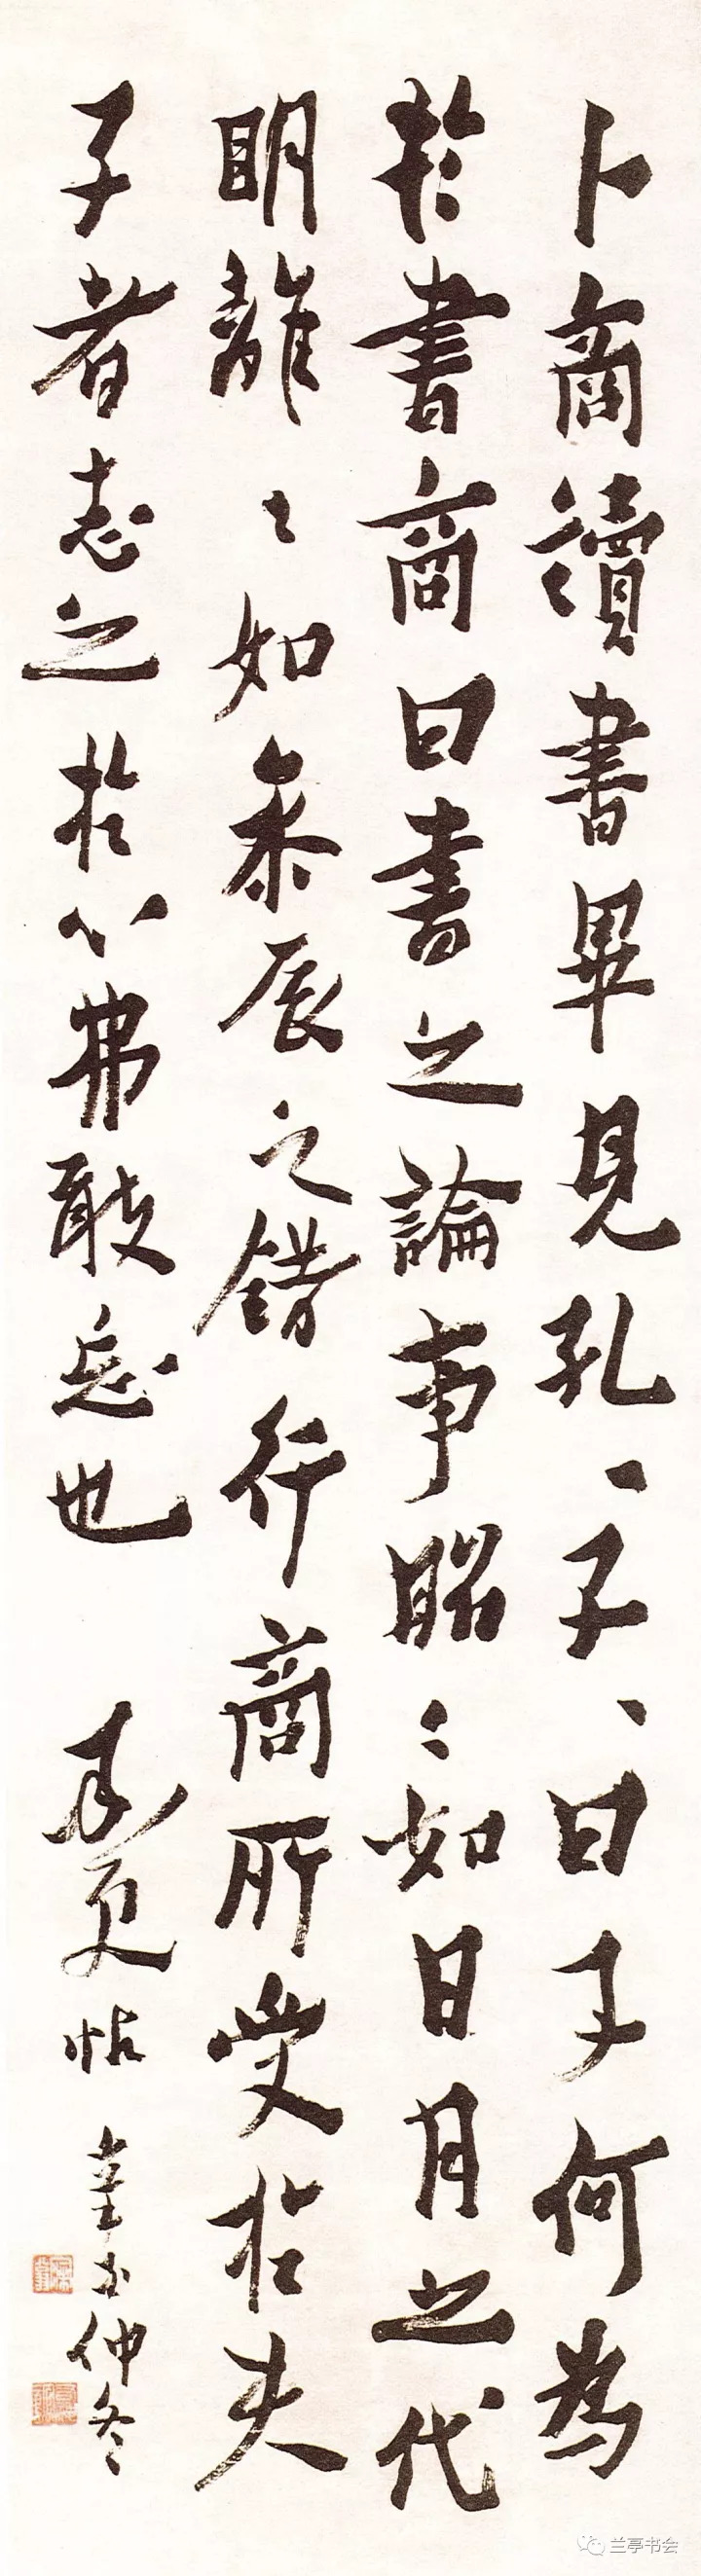 卜商讀書畢見孔〻子〻曰子何為
於書商曰書之論事昭〻如日月之代
明離〻如參辰之錯行商所受於夫
子者志之於心弗敢忘也 率更帖 辛丑仲冬
兰亭书会